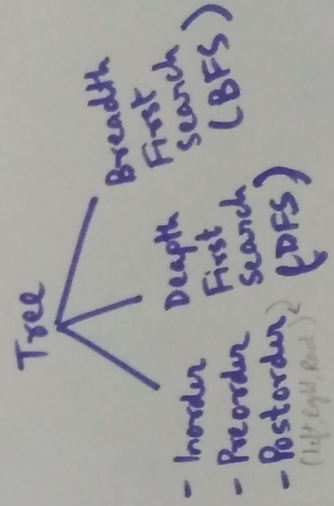 Tree
- Inorder
- Preorder
- Postorder
(left, Right, Root)
Deapth
First
Search
(DFS)
Breadth
First
Search
(BFS)